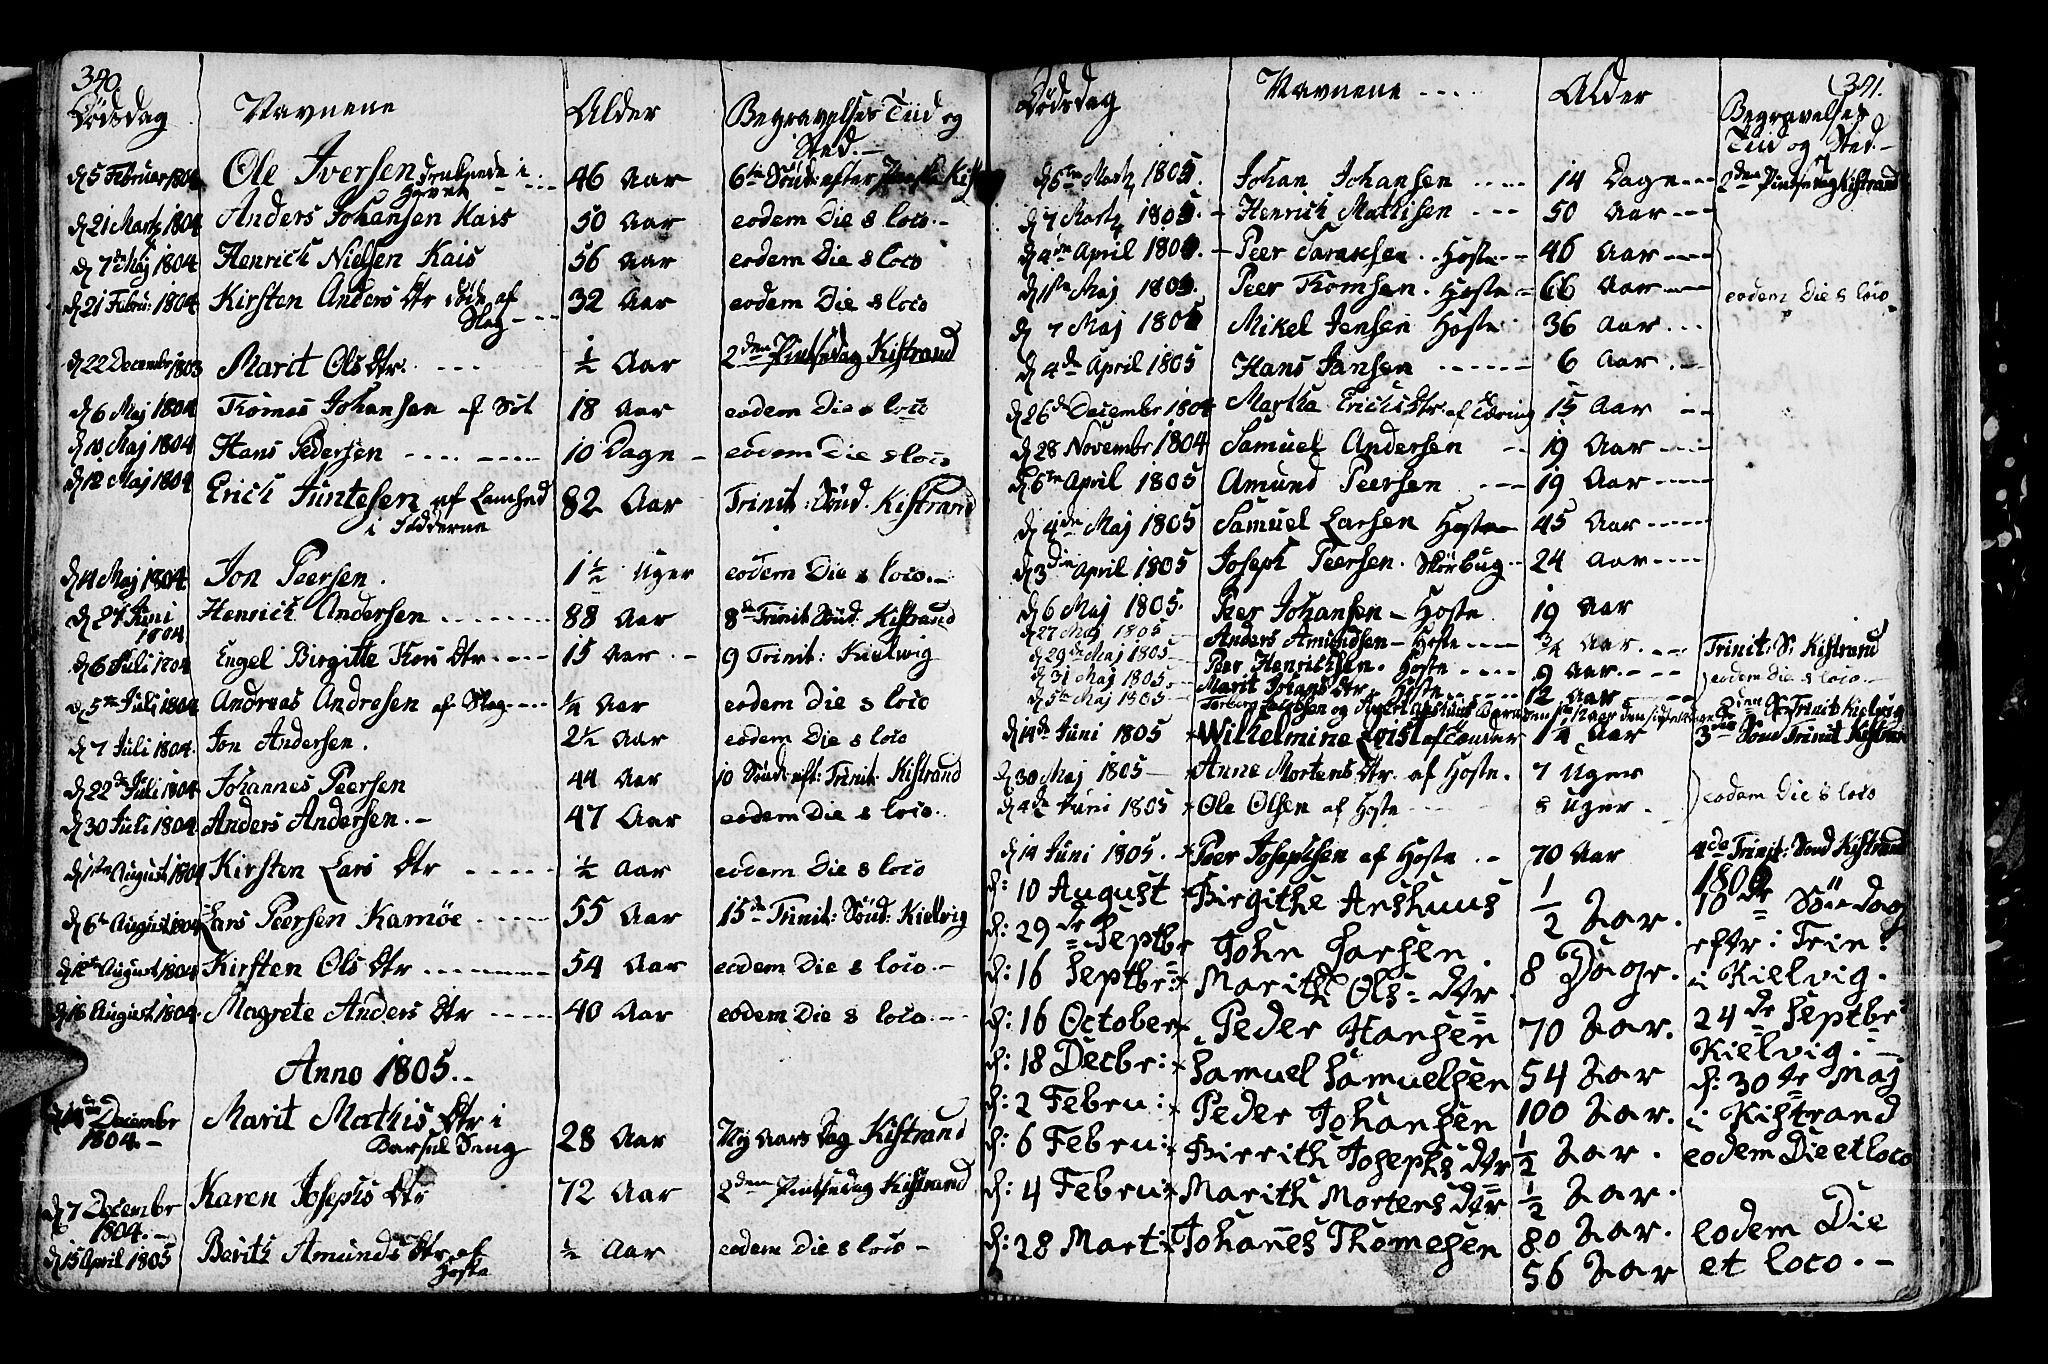 340.
Dødsdag Navnene Alder Begravelses Tiid og
Sted.—
d 5 Februar 1804 Ole Iversen druknede i 46 Aar 6te Sönd: efter
Havet
d 21 Martz 1804 Anders Johansen Kais 50 Aar eodem Die & loco.—
d 7de Maj 1804 Henrich Nielsen Kais 56 Aar eodem Die & loco
d 21 Febru: 1804 Kirsten Anders Dtr döde af 32 Aar eodem Die & loco
Slag
d 22 December 1803 Marit Ols Dtr. ½ Aar 2den Pintsedag Kistrand
d 6 Maj 1804 Thomas Johansen af 18 Aar eodem Die & loco
d 10 Maj 1804 Hans Pedersen 10 Dage eodem Die & loco
d 12 Maj 1804 Erich Juntesen af 82 Aar Trinit: Sönd. Kistrand
i
d 14 Maj 1804 Jon Peersen. 1½ Uger eodem Die & loco.—
d 27 Juni Henrich Andersen 88 Aar 8de Trinit: Sönd. Kistrand
1804
d 6 Juli 1804 Engel Birgitte Thors Dtr 15 Aar. 9 Trinit: Kielwig
d 5te Juli 1804 Andreas Andresen af Slag ¼ Aar eodem Die & loco
d 7 Juli 1804. Jon Andersen. 2½ Aar eodem Die & loco
d 22de Juli 1804 Johannes Peersen 44 Aar 10 Sönd: eft: Trinit: Kistrand
d 30 Juli 1804 Anders Andersen.— 47 Aar eodem Die & loco.
d 1ste August 1804 Kirsten Lars Dtr ½ Aar eodem Die & loco
d 6te August 1804 Lars Peersen Kamöe 55 Aar 15de Trinit: Sönd: Kielvig
d 12te August 1804 Kirsten Ols Dtr 54 Aar eodem Die & loco.—
d 16 August 1804 Magrete Anders Dtr 40 Aar eodem Die & loco.—
Anno 1805.
December Marit Mathis Dtr i 28 Aar Nÿ Aars Dag Kistrand
1804.— Barsel Seng
d 7 December Karen Josephs Dtr 72 Aar 2den Pintsedag Kistrand
1804.—
d 15 April 1805 Berith Amunds Dtr af ½ Aar eodem Die & loco —
Hoste
341.
Dødsdag Navnene Alder Begravelses
Tiid og Sted.—
d 6te Martz 1805 Johan Johansen 14 Dage 2den Pintsedag Kistrand
d 7 Martz 1805. Henrich Mathisen 50 Aar
d 4de April 1805. Peer Hoste 46 Aar
d 1ste Maj 1805. Peer Thomsen. Hoste 66 Aar eodem Die & loco
d 7 Maj 1805 Mikel Jensen Hoste 36 Aar
d 4de April 1805 Hans Jansen 6 Aar
d 26de December 1804 Martha Erichs Dtr af 15 Aar
d 28 November 1804 Samuel Andersen 19 Aar
d 6te April 1805 Amund Peersen 19 Aar
d 4de Maj 1805 Samuel Larsen Hoste 45 Aar
d 3die April 1805 Joseph Peersen. Skörbug 24 Aar
d 6 Maj 1805. Peer Johansen — Hoste 19 Aar
d 27 Maj 1805 Anders Amundsen — Hoste ¾ Aar. Trinit: S: Kistrand
d 29de Maj 1805 Peer Henrichsen. Hoste 9 Aar. eodem die & loco.
d 31 Maj 1805. Marit Johans Dtr. Hoste 12 Aar
d 5te Maj 1805 og 2den S: Trinit: Kielvig
d 14de Juni 1805 Wilhelmine Qvist af 1¼ Aar 3die Sönd Trinit Kistrand
d 30 Maj 1805 Anne Mortens Dtr. af Hoste. 7 Uger
d 4de Juni 1805 Ole Olsen af Hoste 8 Uger. eodem Die & loco
d 14 Juni 1805. Peer Josephsen af Hoste 70 Aar 4de Trinit: Sönd Kistrand
d: 10 August Birgithe Arshuus ½ Aar. 18de Söndag
d: 29de Septbr John Larsen. 8 Dage. efter: Trin:
d: 16 Septbr: Marith Ols= dtr 70 Aar. i Kielvig.
d: 16 October Peder Hansen 54 Aar 24de Septbr
d: 18 Decbr: Samuel Samuelsen 100 Aar. Kielvig.—
d: 2 Febru: Peder Johansen ½ Aar. d: 30te Maj
d: 6 Febru: Birrith Josephs dtr ½ Aar. i Kistrand
d: 4 Febru: Marith Mortens dtr 80 Aar. eodem Die et loco
d: 28 Mart: Johannes Thomesen 56 Aar eodem Die
et loco.—